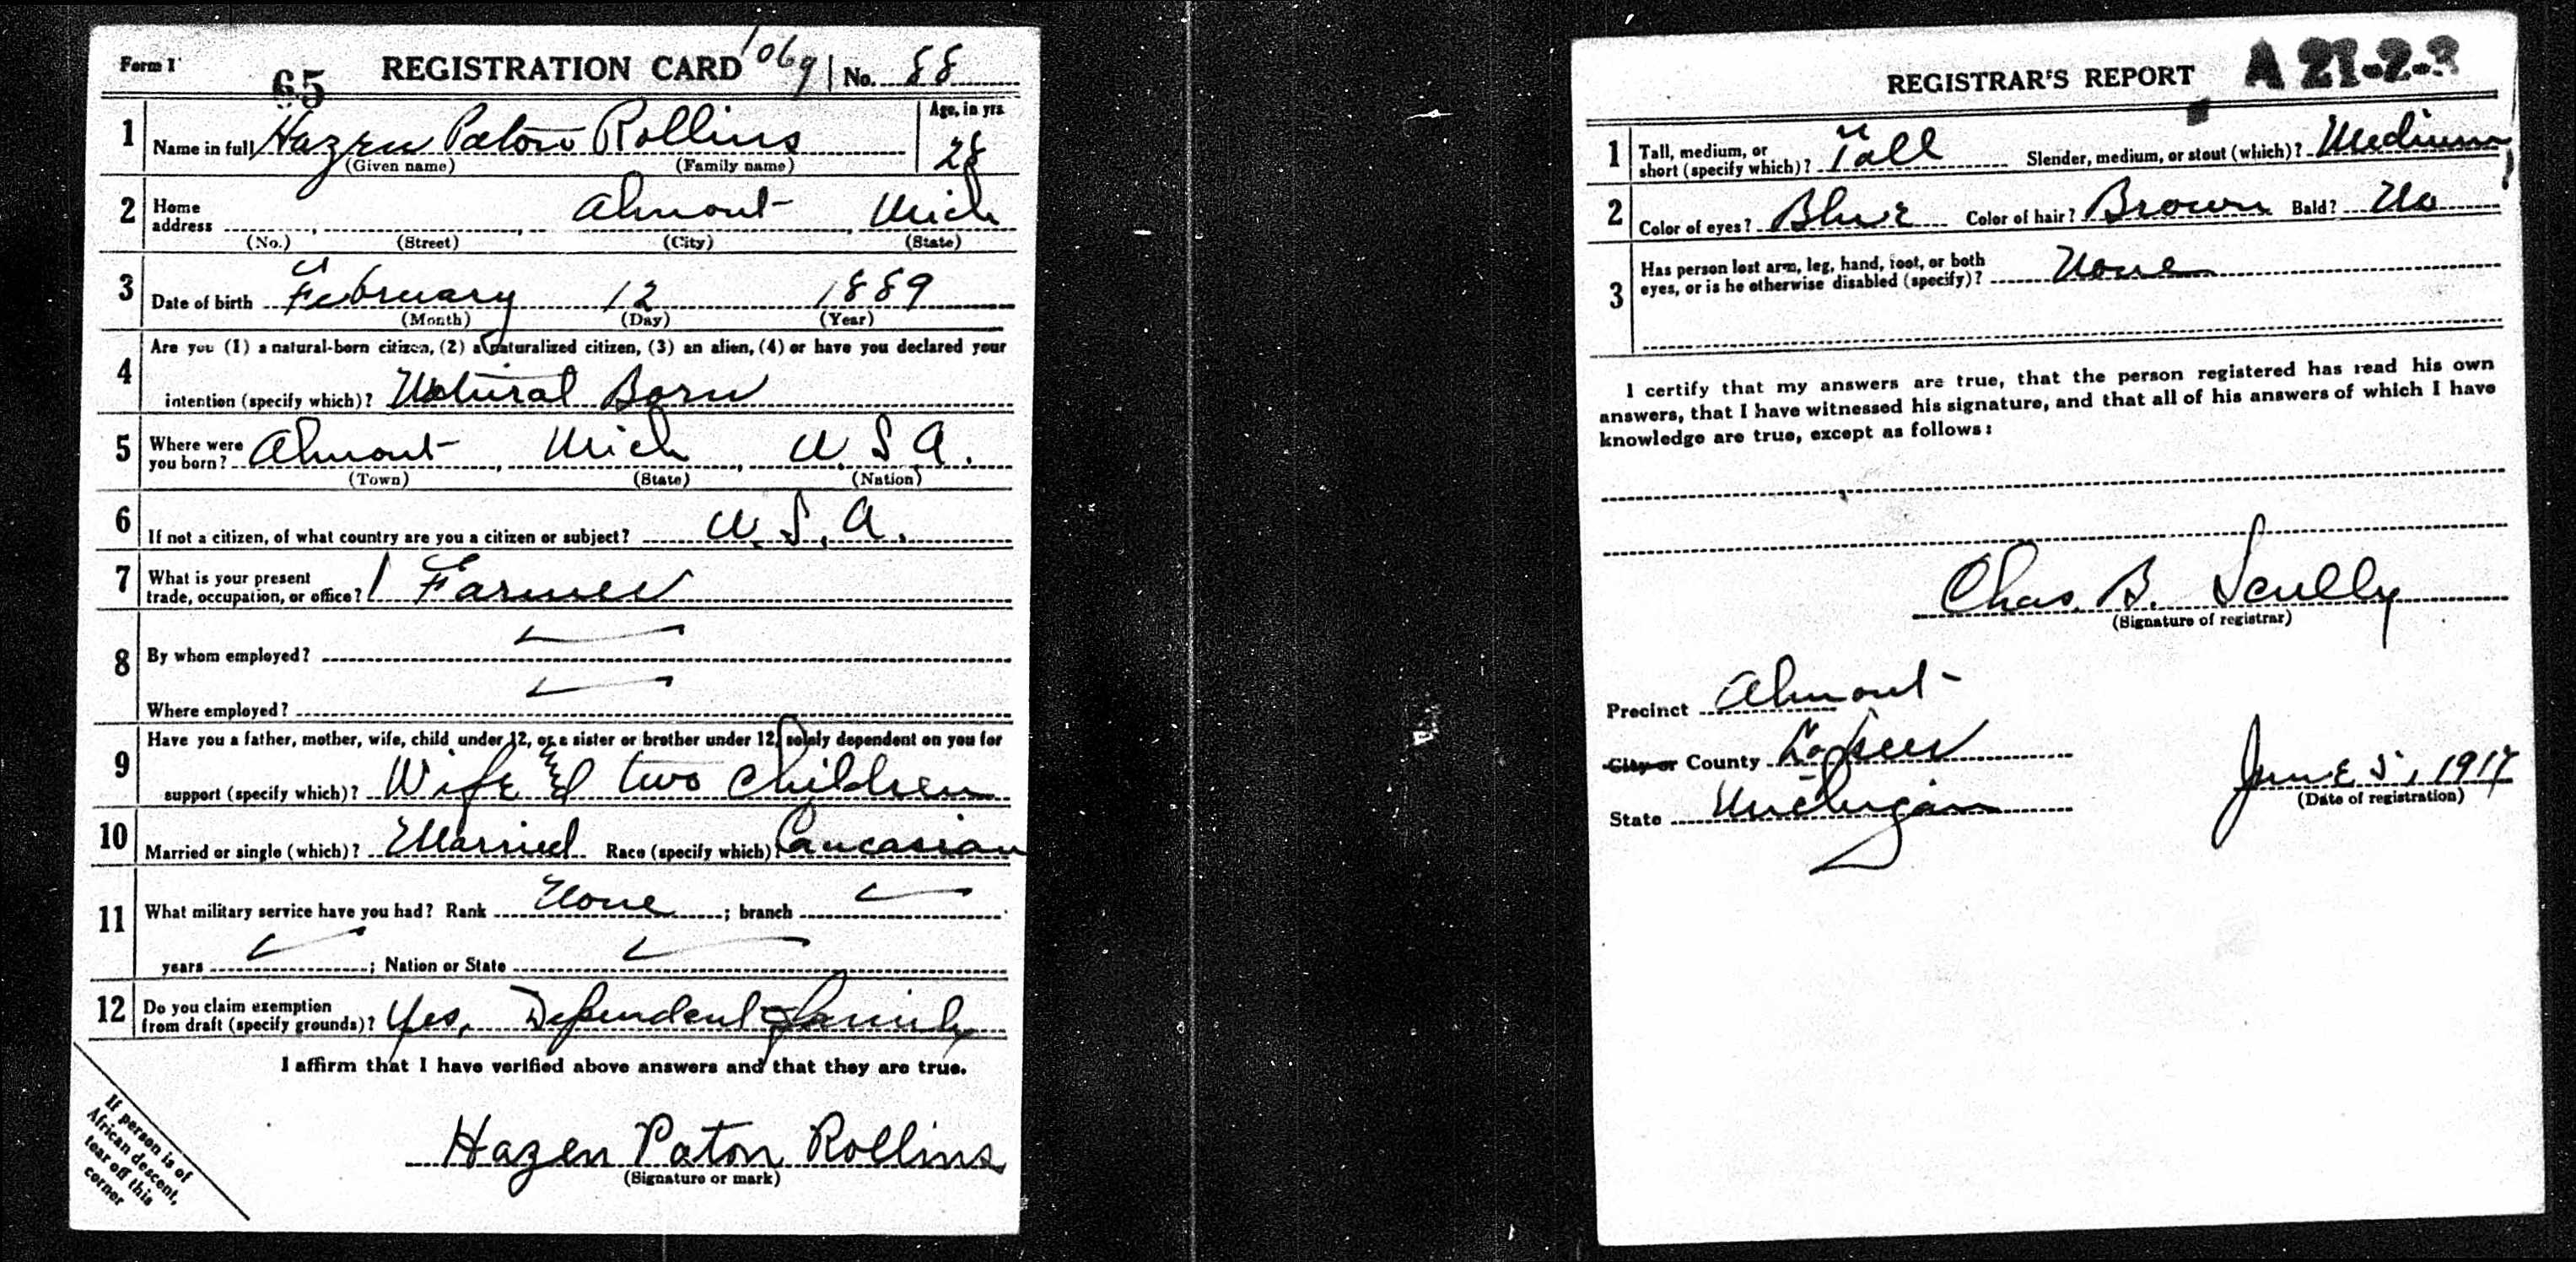 Form 1 65 REGISTRATION CARD 1069 No. 88
1 Name in full Hazen Paton Rollins Age, in yrs 28
(Given name) (Family name)
2 Home address Almont Mich
(No.) (Street) (City) (State)
3 Date of birth February 12 1889
(Month) (Day) (Year)
4 Are you (1) a natural-born citizen, (2) a naturalized citizen, (3) an alien, (4) or have you declared your
intention (specify which)? Natural Born
5 Where were you born? Almont, Mich, U.S.A.
(Town) (State) (Nation)
6 If not a citizen, of what country are you a citizen or subject? U.S.A.
7 What is your present trade, occupation, or office? Farmer
8 By whom employed?
Where employed?
9 Have you a father, mother, wife, child under 12, or a sister or brother under 12, solely dependent on you for
support (specify which)? Wife and two children
10 Married or single (which)? Married Race (specify which)? Caucasian
11 What military service have you had? Rank None; branch
years ; Nation or State
12 Do you claim exemption from draft (specify grounds)? Yes, Dependent family
I affirm that I have verified above answers and that they are true.
Hazen Paton Rollins
(Signature or mark)
If person is of
African descent,
tear off this
corner
REGISTRAR'S REPORT A 21-2-3
1 Tall, medium, or short (specify which)? Tall Slender, medium, or stout (which)? Medium
2 Color of eyes? Blue Color of hair? Brown Bald? No
3 Has person lost arm, leg, hand, foot, or both
eyes, or is he otherwise disabled (specify)? None
I certify that my answers are true, that the person registered has read his own
answers, that I have witnessed his signature, and that all of his answers of which I have
knowledge are true, except as follows:
Chas. B. Scully
(Signature of registrar)
Precinct Almont
City or County Lapeer
State Michigan
June 5, 1917
(Date of registration)